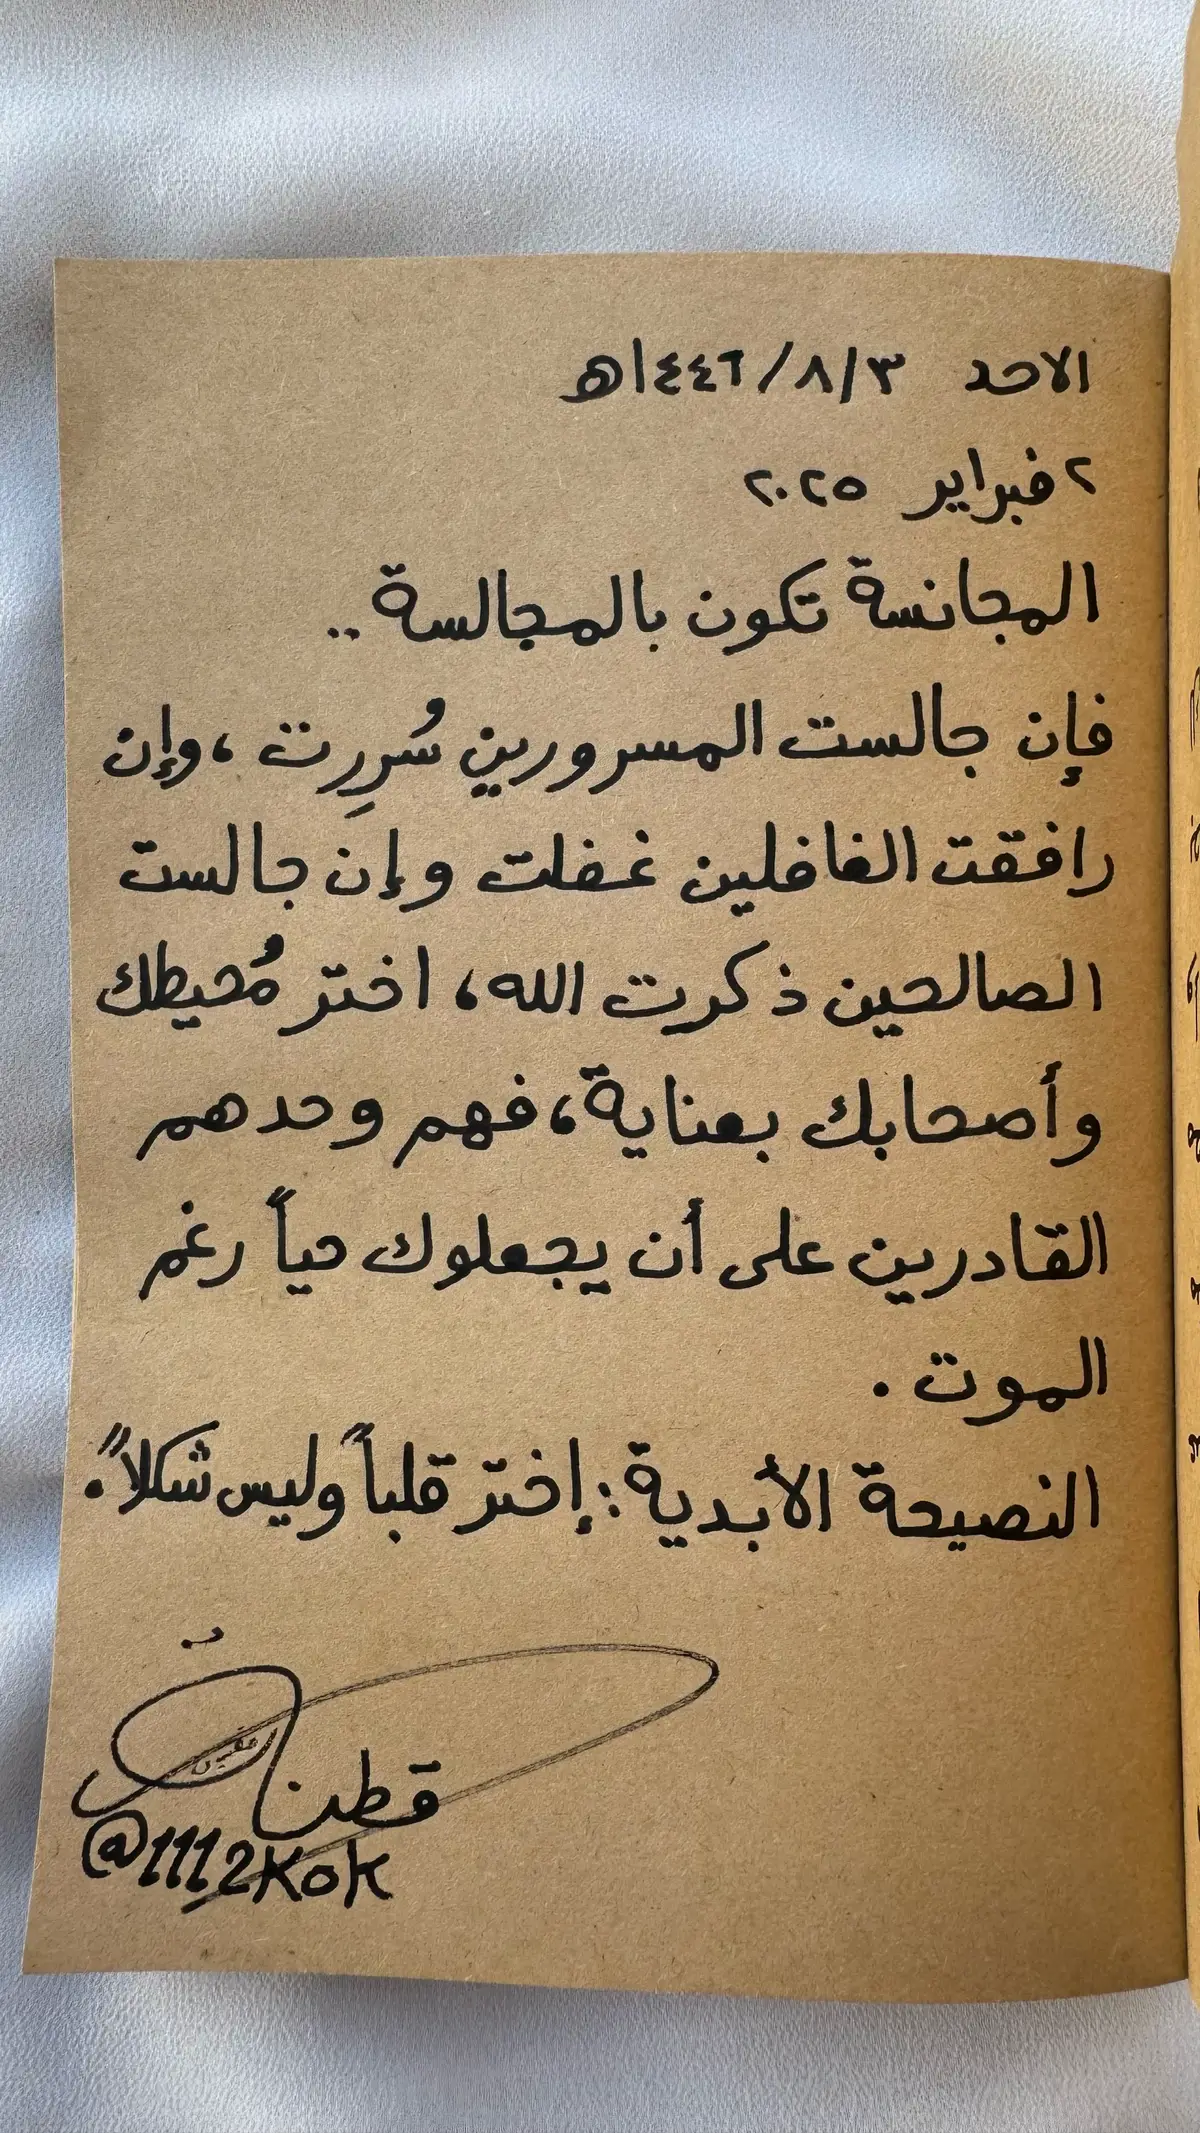 الاحد ٣/٨/١٤٤٦هـ
٢ فبراير ٢٠٢٥
المجانسة تكون بالمجالسة ..
فإن جالست المسرورين سُرِرت ، وإن
رافقت الغافلين غفلت وإن جالست
الصالحين ذكرت الله، اختر مُحيطك
وأصحابك بعناية، فهم وحدهم
القادرين على أن يجعلوك حياً رغم
الموت .
النصيحة الأبدية : إختر قلباً وليس شكلاً.
@1112kok